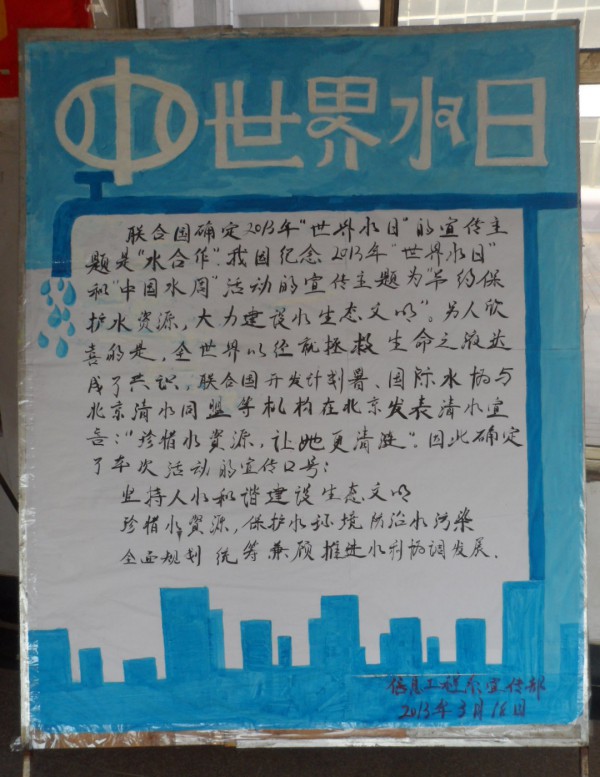 世界水日
联合国确定2013年"世界水日"的宣传主
题是"水合作"。我国纪念2013年"世界水日"
和"中国水周"活动的宣传主题为"节约保
护水资源,大力建设水生态文明"。另人欣
喜的是,全世界以经就拯救生命之液达
成了共识,联合国开发计划署、国际水协与
北京清水同盟等机构在北京发表清水宣
言:"珍惜水资源,让她更清涟"。因此确定
了本次活动的宣传口号:
坚持人水和谐建设生态文明
珍惜水资源,保护水环境防治水污染
全面规划统筹兼顾推进水利协调发展.
信息工程系宣传部
2013年3月18日